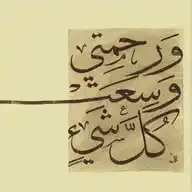 وَرَحْمَتِي
وَسِعَتْ
كُلَّ شَيْءٍ